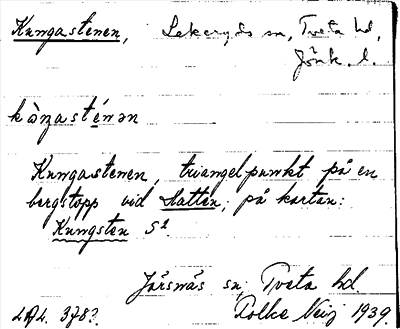 Kungastenen, Lekeryds sn, Tveta hd,
Jönk. l.
kòŋastén̄ən
Kungastenen, triangelpunkt på en
bergstopp vid Hatten; på kartan:
Kungsten S²
Järsnäs sn, Tveta hd
Folke Neij 1939.